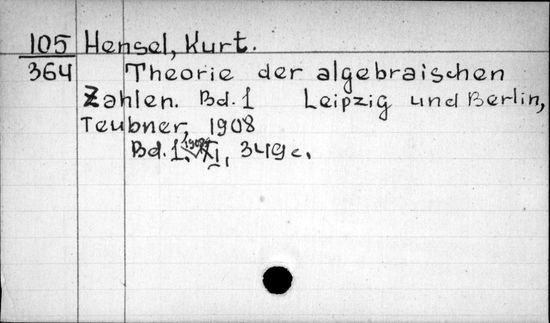 105 Hensel, Kurt.
364 Theorie der algebraischen
Zahlen. Bd. 1 Leipzig und Berlin,
Teubner, 1908
Bd. 1. 1908, XI, 349 c.